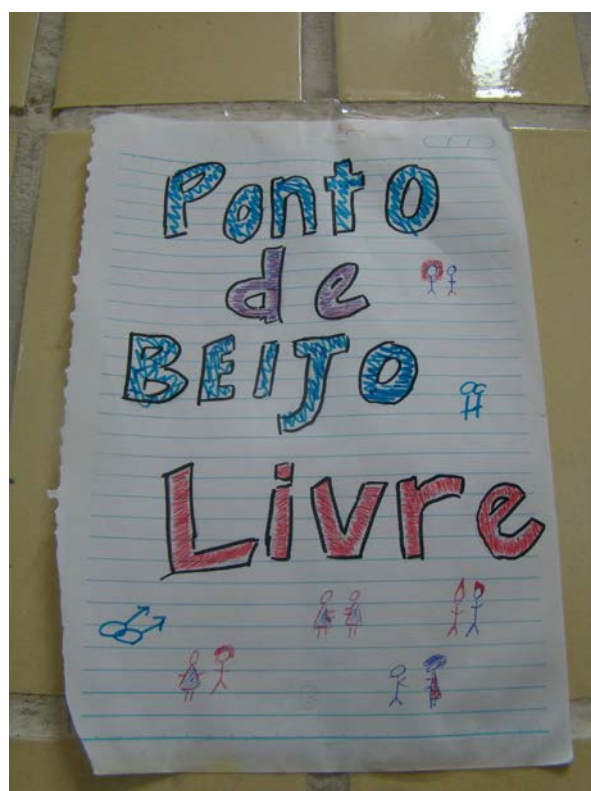 Ponto
de
BEIJO
Livre